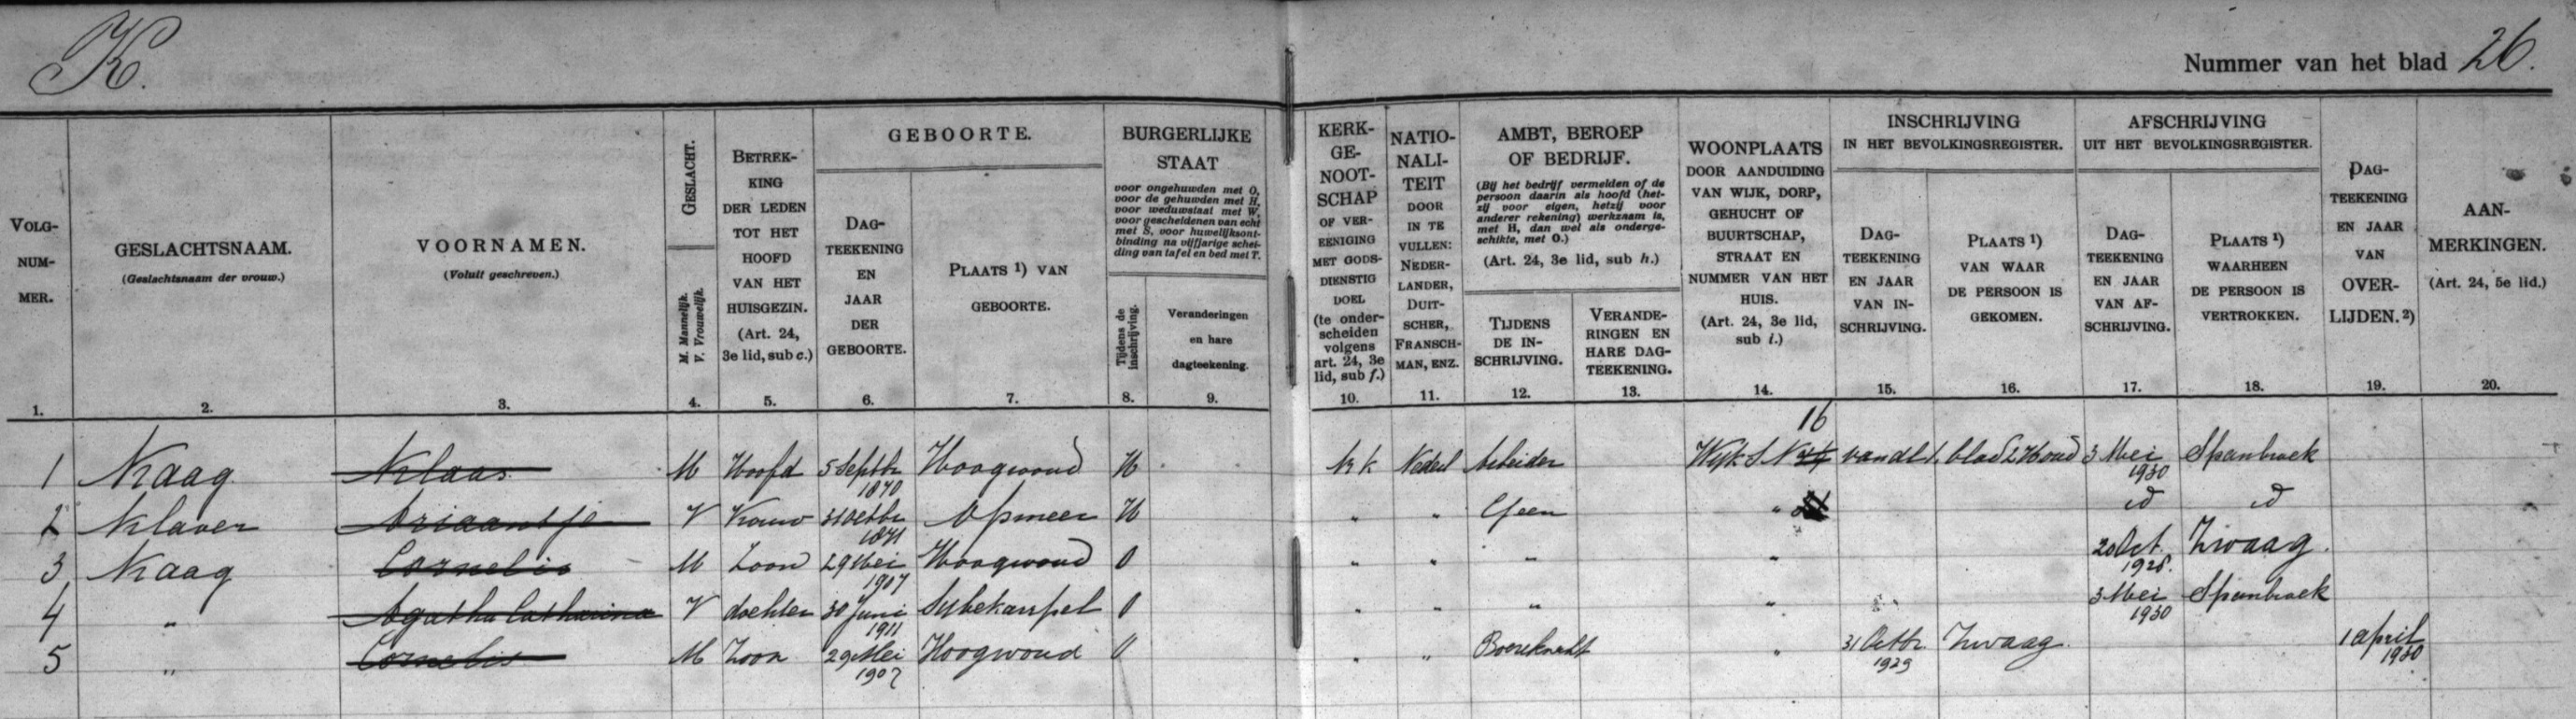 K.
Nummer van het blad 26.
VOLG-NUM-MER.
GESLACHTSNAAM.
(Geslachtsnaam der vrouw.)
VOORNAMEN.
(Voluit geschreven.)
GESLACHT.
M. Mannelijk.
V. Vrouwelijk.
BETREK-
KING
DER LEDEN
TOT HET
HOOFD
VAN HET
HUISGEZIN.
(Art. 24,
3e lid, sub c.)
GEBOORTE.
DAG-
TEEKENING
EN
JAAR
DER
GEBOORTE.
PLAATS 1) VAN
GEBOORTE.
BURGERLIJKE
STAAT
voor ongehuwden met O,
voor de gehuwden met H,
voor weduwstaat met W,
voor gescheidenen van echt
met S, voor huwelijksont-
binding na vijfjarige schei-
ding van tafel en bed met T.
Tijdens de
inschrijving.
Veranderingen
en hare
dagteekening.
KERK-
GE-
NOOT-
SCHAP
OF VER-
EENIGING
MET GODS-
DIENSTIG
DOEL
(te onder-
scheiden
volgens
art. 24, 3e
lid, sub f.)
NATIO-
NALI-
TEIT
DOOR
IN TE
VULLEN:
NEDER-
LANDER,
DUIT-
SCHER,
FRANSCH-
MAN, ENZ.
AMBT, BEROEP
OF BEDRIJF.
(Bij het bedrijf vermelden of de
persoon daarin als hoofd (het-
zij voor eigen, hetzij voor
anderer rekening) werkzaam is,
met H, dan wel als onderge-
schikte, met O.)
(Art. 24, 3e lid, sub h.)
TIJDENS
DE IN-
SCHRIJVING.
VERANDE-
RINGEN EN
HARE DAG-
TEEKENING.
WOONPLAATS
DOOR AANDUIDING
VAN WIJK, DORP,
GEHUCHT OF
BUURTSCHAP,
STRAAT EN
NUMMER VAN HET
HUIS.
(Art. 24, 3e lid,
sub i.)
INSCHRIJVING
IN HET BEVOLKINGSREGISTER.
DAG-
TEEKENING
EN JAAR
VAN IN-
SCHRIJVING.
PLAATS 1)
VAN WAAR
DE PERSOON IS
GEKOMEN.
AFSCHRIJVING
UIT HET BEVOLKINGSREGISTER.
DAG-
TEEKENING
EN JAAR
VAN AF-
SCHRIJVING.
PLAATS 1)
WAARHEEN
DE PERSOON IS
VERTROKKEN.
DAG-
TEEKENING
EN JAAR
VAN
OVER-
LIJDEN. 2)
AAN-
MERKINGEN.
(Art. 24, 5e lid.)
1. 2. 3. 4. 5. 6. 7. 8. 9. 10. 11. 12. 13. 14. 15. 16. 17. 18. 19. 20.
16
1 Kaag Klaas M Hoofd 5 Septbr 1870 Hoogwoud H RK Nederl Arbeider Wijk S N van dl 1 blad 276 oud 3 Mei 1930 Spanbroek
2 Klaver Ariaantje V Vrouw 31 Octbr 1871 Opmeer H " " Geen " id id
3 Kaag Cornelis M Zoon 29 Mei 1907 Hoogwoud O " " " " 20 Oct. 1928. Zwaag.
4 " Agatha Catharina V dochter 30 Juni 1911 Sybekarspel O " " " " 3 Mei 1930 Spanbroek
5 " Cornelis M Zoon 29 Mei 1907 Hoogwoud O " " Boereknecht " 31 Octbr. 1929 Zwaag. 1 April 1930